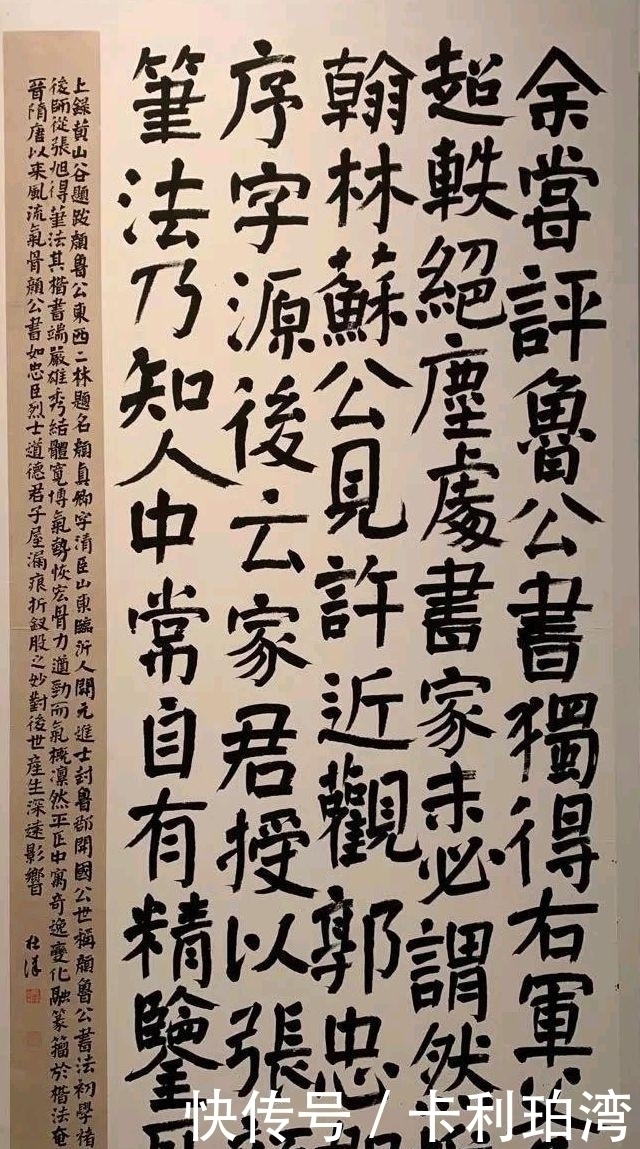 余嘗評魯公書獨得右軍
超軼絕塵處書家未必謂然
翰林蘇公見許近觀郭忠
序字源後云家君授以張
筆法乃知人中常自有精鑒
上錄黃山谷題跋顏魯公東西二林題名顏真卿字清臣山東臨沂人開元進士封魯郡開國公世稱顏魯公書法初學褚
後師從張旭得筆法其楷書端嚴雄秀結體寬博氣勢恢宏骨力遒勁而氣概凜然平正中寓奇逸變化融篆籀於楷法奄
晉隋唐以来風流氣骨顏公書如忠臣烈士道德君子屋漏痕折釵股之妙對後世産生深遠影響
快传号 / 卡利珀湾